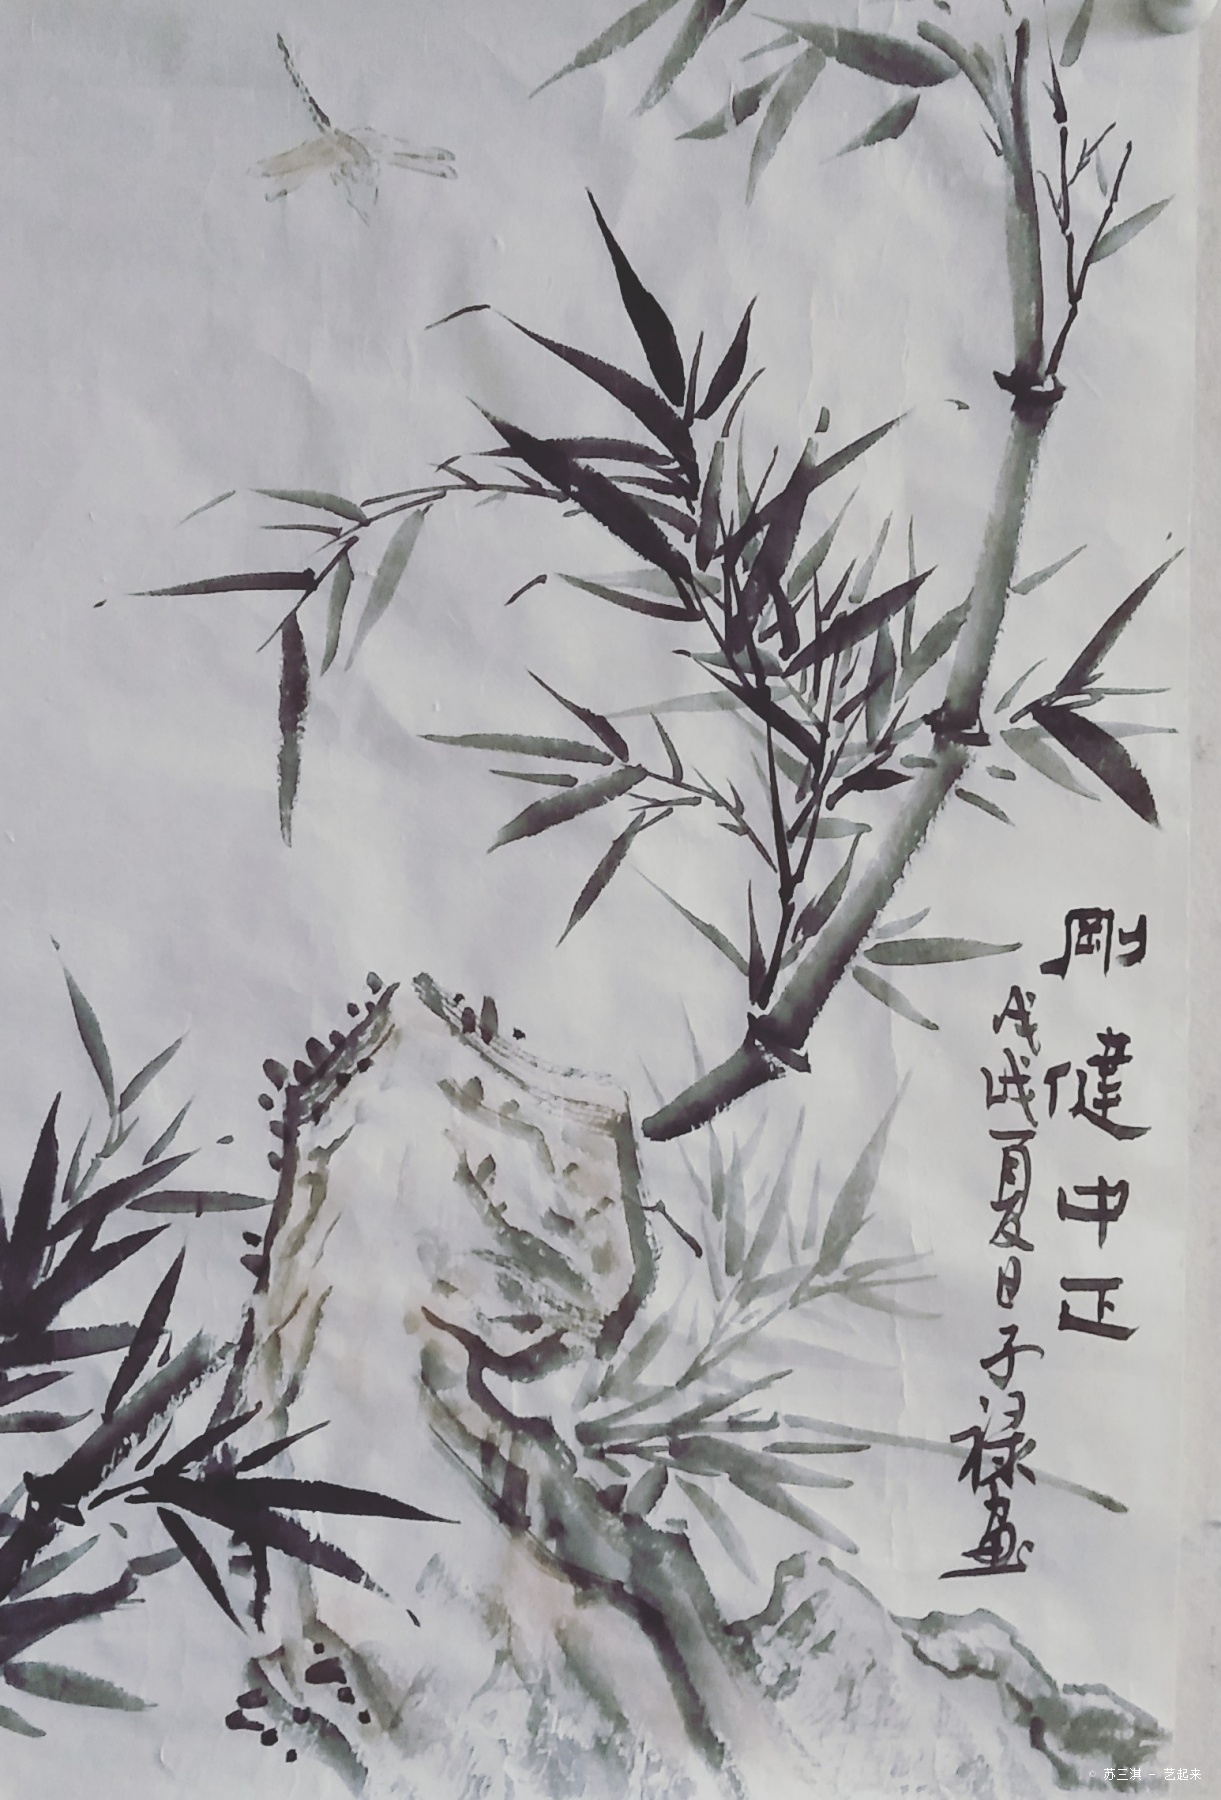 剛健中正
戊戌夏日子禄画
© 苏三淇 - 艺起来